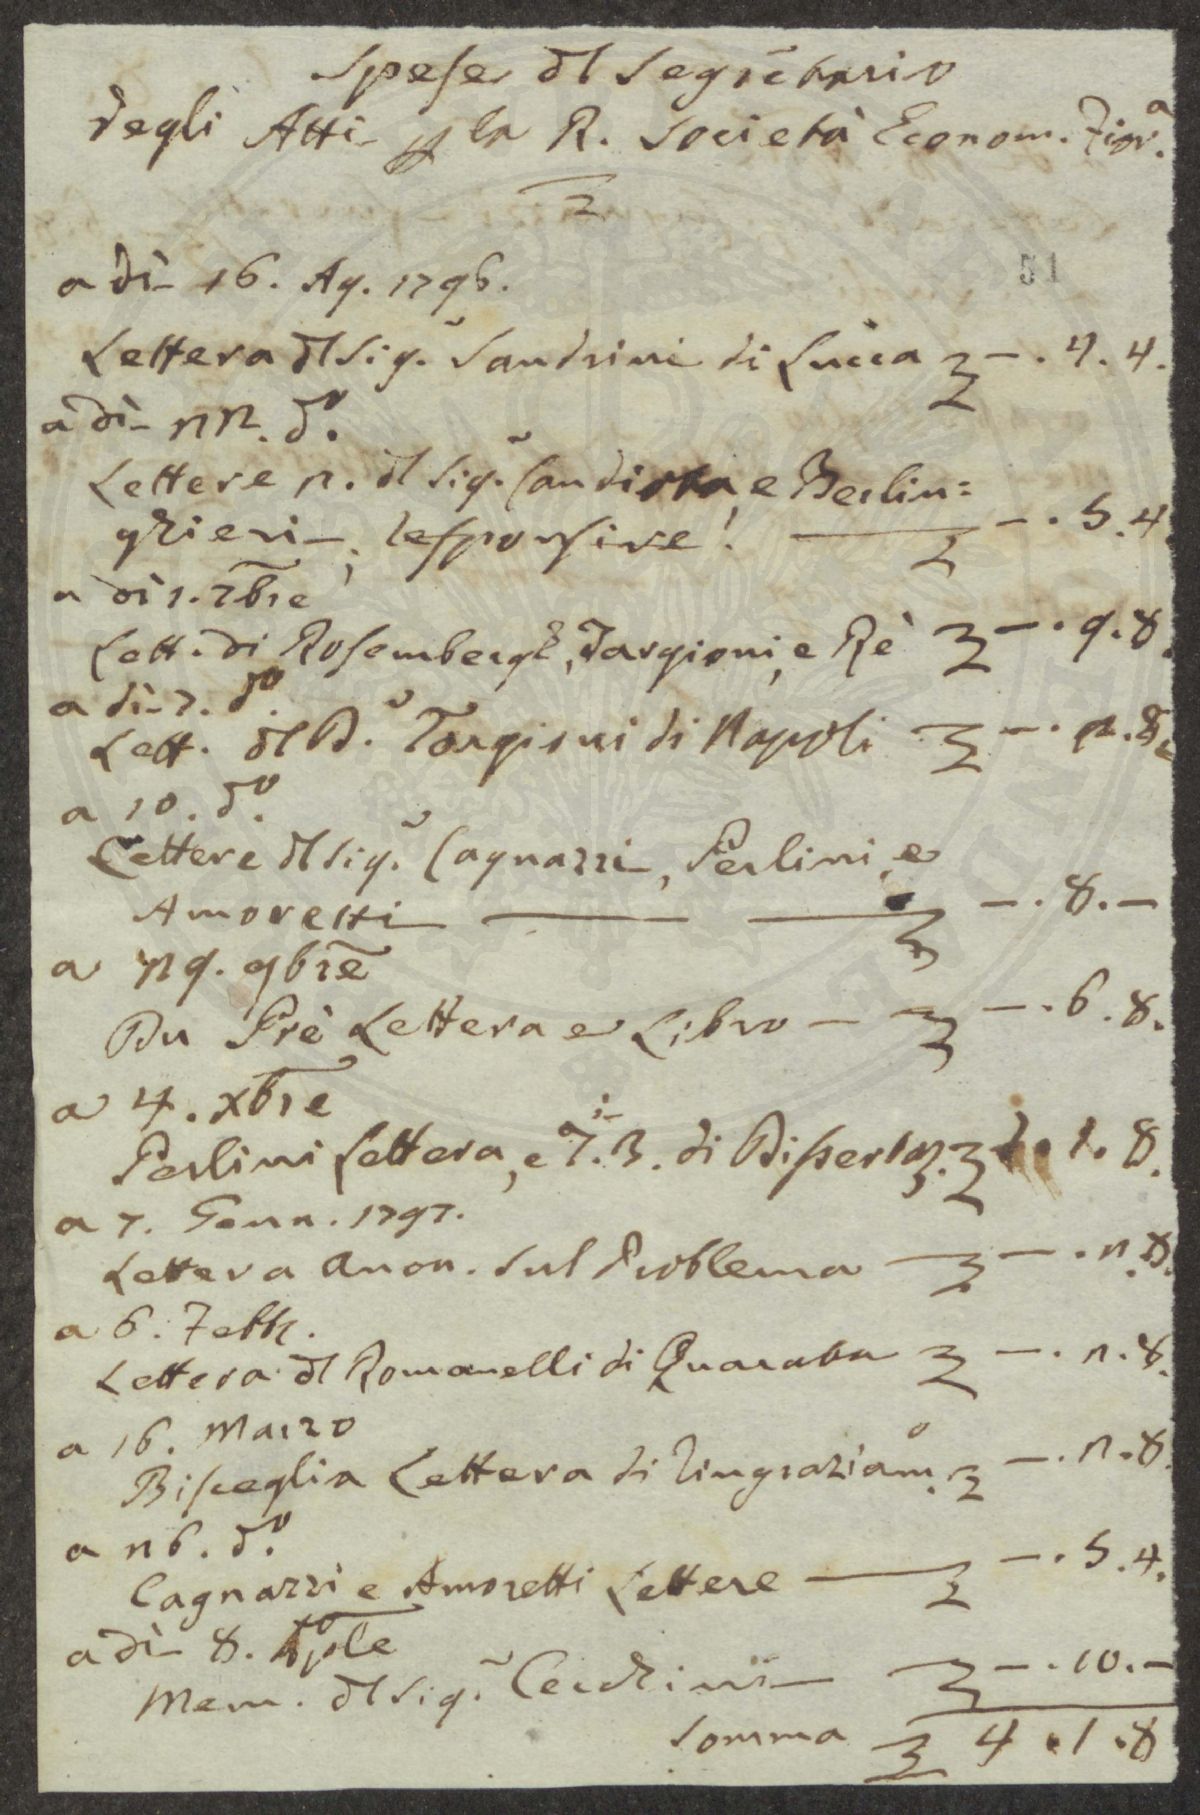 Spese dl Segretario
degli Atti p la R. Società Econom. Fior.a
a dì 16. Ag. 1796.
51
Lettera dl Sig. Sandrini di Lucca £ —. 4. 4.
a dì 22. do.
Lettere 2. dl Sig. e Berlin=
ghieri, responsive! £ —. 5. 4.
a dì 1. 7bre
Lett. di Rosembergh, Targioni, e Rè £ —. 9. 8.
a dì 7. do.
Lett. dl D. Targioni di Napoli £ —. 2. 8.
a 10. do.
Lettere dl Sig. Cagnazzi, Perlini, e
Amoretti £ —. 8. —
a 29. 9bre
Du Prè Lettera e Libro — £ —. 6. 8.
a 4. Xbre
Perlini Lettera, e T. 3. di Dissertaz. £ 1. 1. 8.
a 7. Genn. 1797.
Lettera anon. sul Problema £ —. 2. 8.
a 6. Febb.
Lettera dl Romanelli di Quarata £ —. 2. 8.
a 16. Marzo
Bisceglia Lettera di ringraziam.o £ —. 2. 8.
a 26. do.
Cagnazzi e Amoretti Lettere £ —. 5. 4.
a dì 8. Aple
Mem. dl Sig. Cecchini £ —. 10. —
Somma £ 4. 1. 8